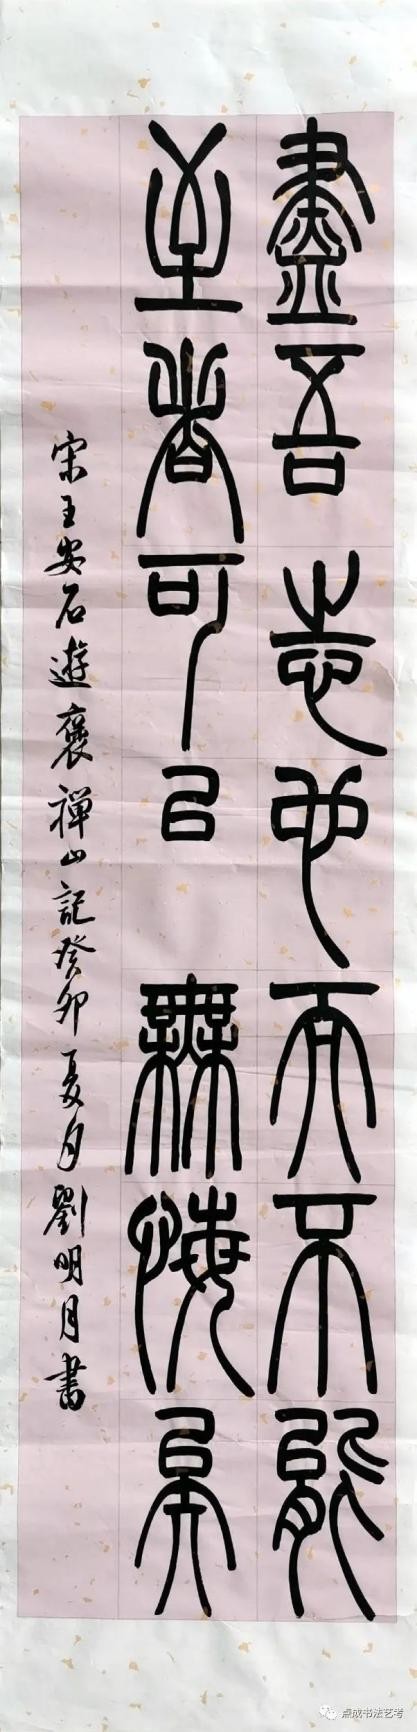 盡吾志也而不能
至者可㠯無悔矣
宋王安石遊褒禪山記癸卯夏月劉明月書
点成书法艺考